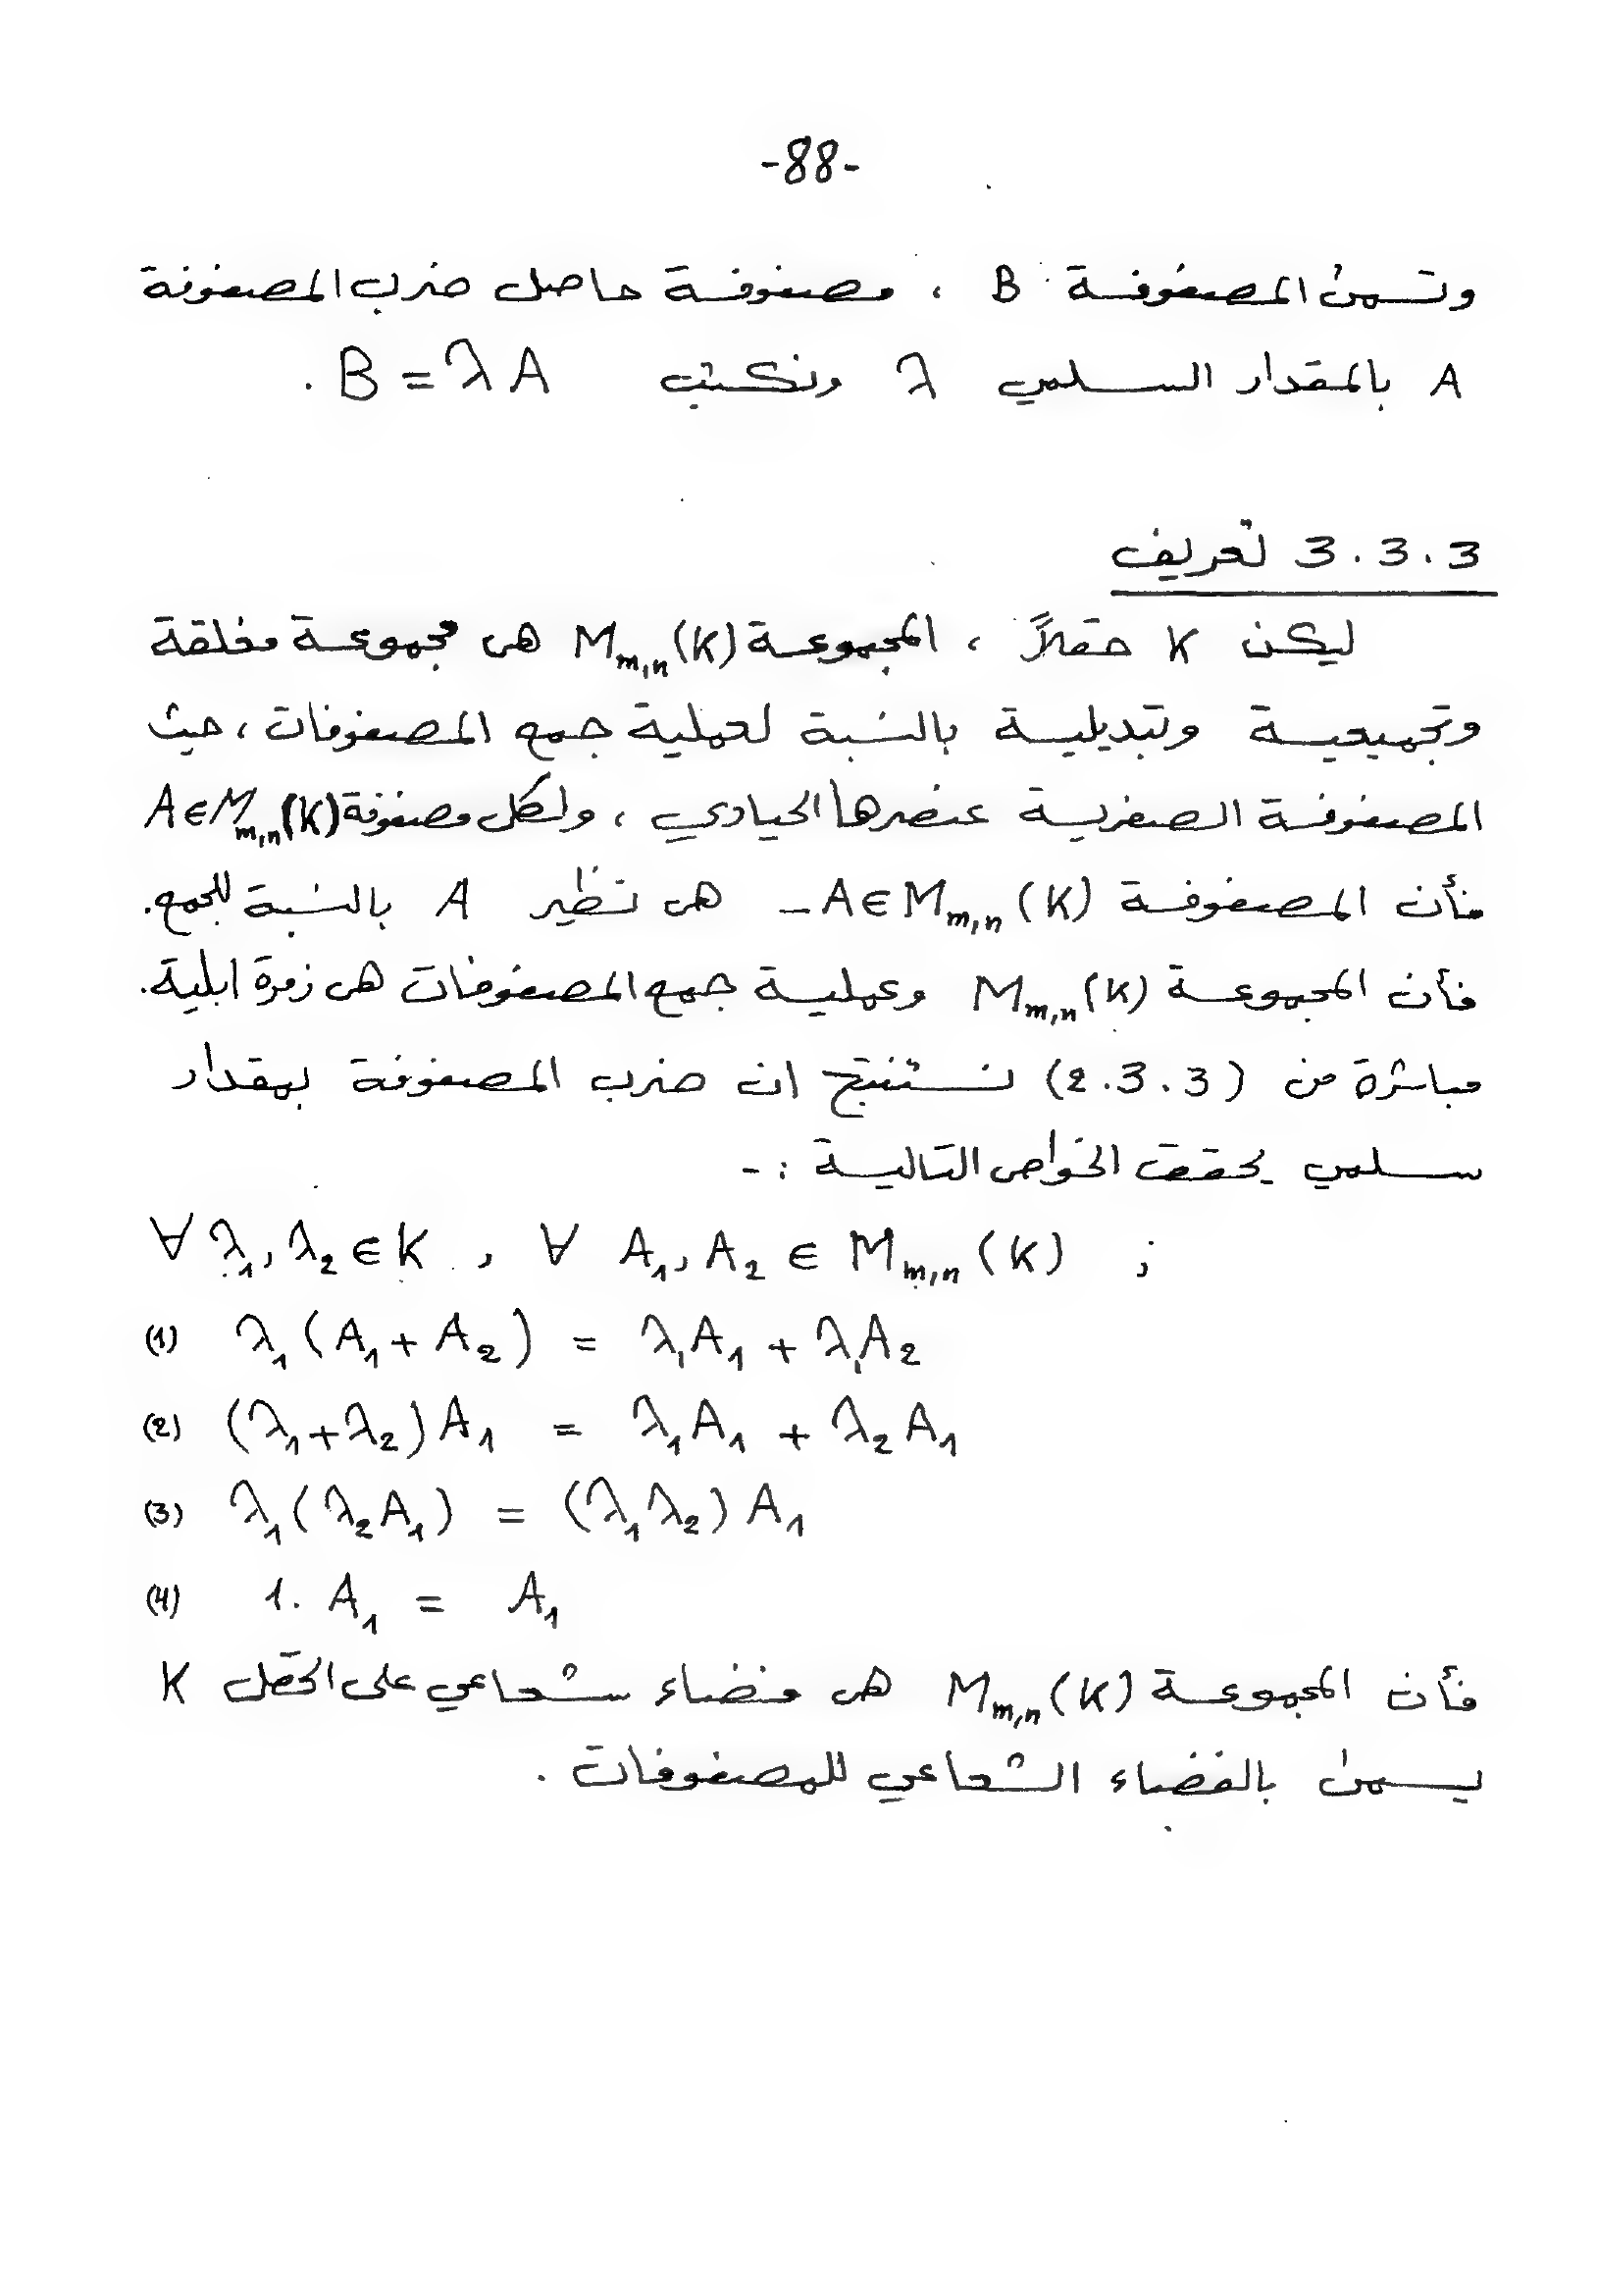 -88-
وتسمى المصفوفة B ، مصفوفة حاصل ضرب المصفوفة
A بالمقدار السلمي λ ونكتب B = λA .
3.3.3 تعريف
ليكن K حقلاً ، المجموعة M_{m,n}(K) هي مجموعة مغلقة
وتجميعية وتبديلية بالنسبة لعملية جمع المصفوفات ، حيث
المصفوفة الصفرية عنصرها الحيادي ، ولكل مصفوفة A∈M_{m,n}(K)
فأن المصفوفة -A∈M_{m,n}(K) هي نظير A بالنسبة للجمع.
فأن المجموعة M_{m,n}(K) وعملية جمع المصفوفات هي زمرة ابلية.
مباشرة من (2.3.3) نستنتج ان ضرب المصفوفة بمقدار
سلمي يحقق الخواص التالية :-
∀ λ₁, λ₂ ∈ K , ∀ A₁, A₂ ∈ M_{m,n}(K) ;
(1) λ₁(A₁ + A₂) = λ₁A₁ + λ₁A₂
(2) (λ₁+λ₂)A₁ = λ₁A₁ + λ₂A₁
(3) λ₁(λ₂A₁) = (λ₁λ₂)A₁
(4) 1. A₁ = A₁
فأن المجموعة M_{m,n}(K) هي فضاء شعاعي على الحقل K
يسمى بالفضاء الشعاعي للمصفوفات .